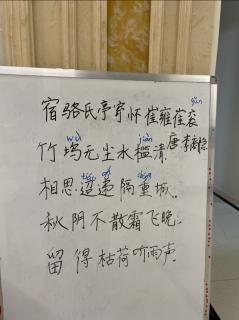 宿骆氏亭寄怀崔雍崔衮
gǔn
竹坞无尘水槛清 唐 李商隐
wù jiàn
相思迢递隔重城.
tiáo dì chóng
秋阴不散霜飞晚.
留得枯荷听雨声.